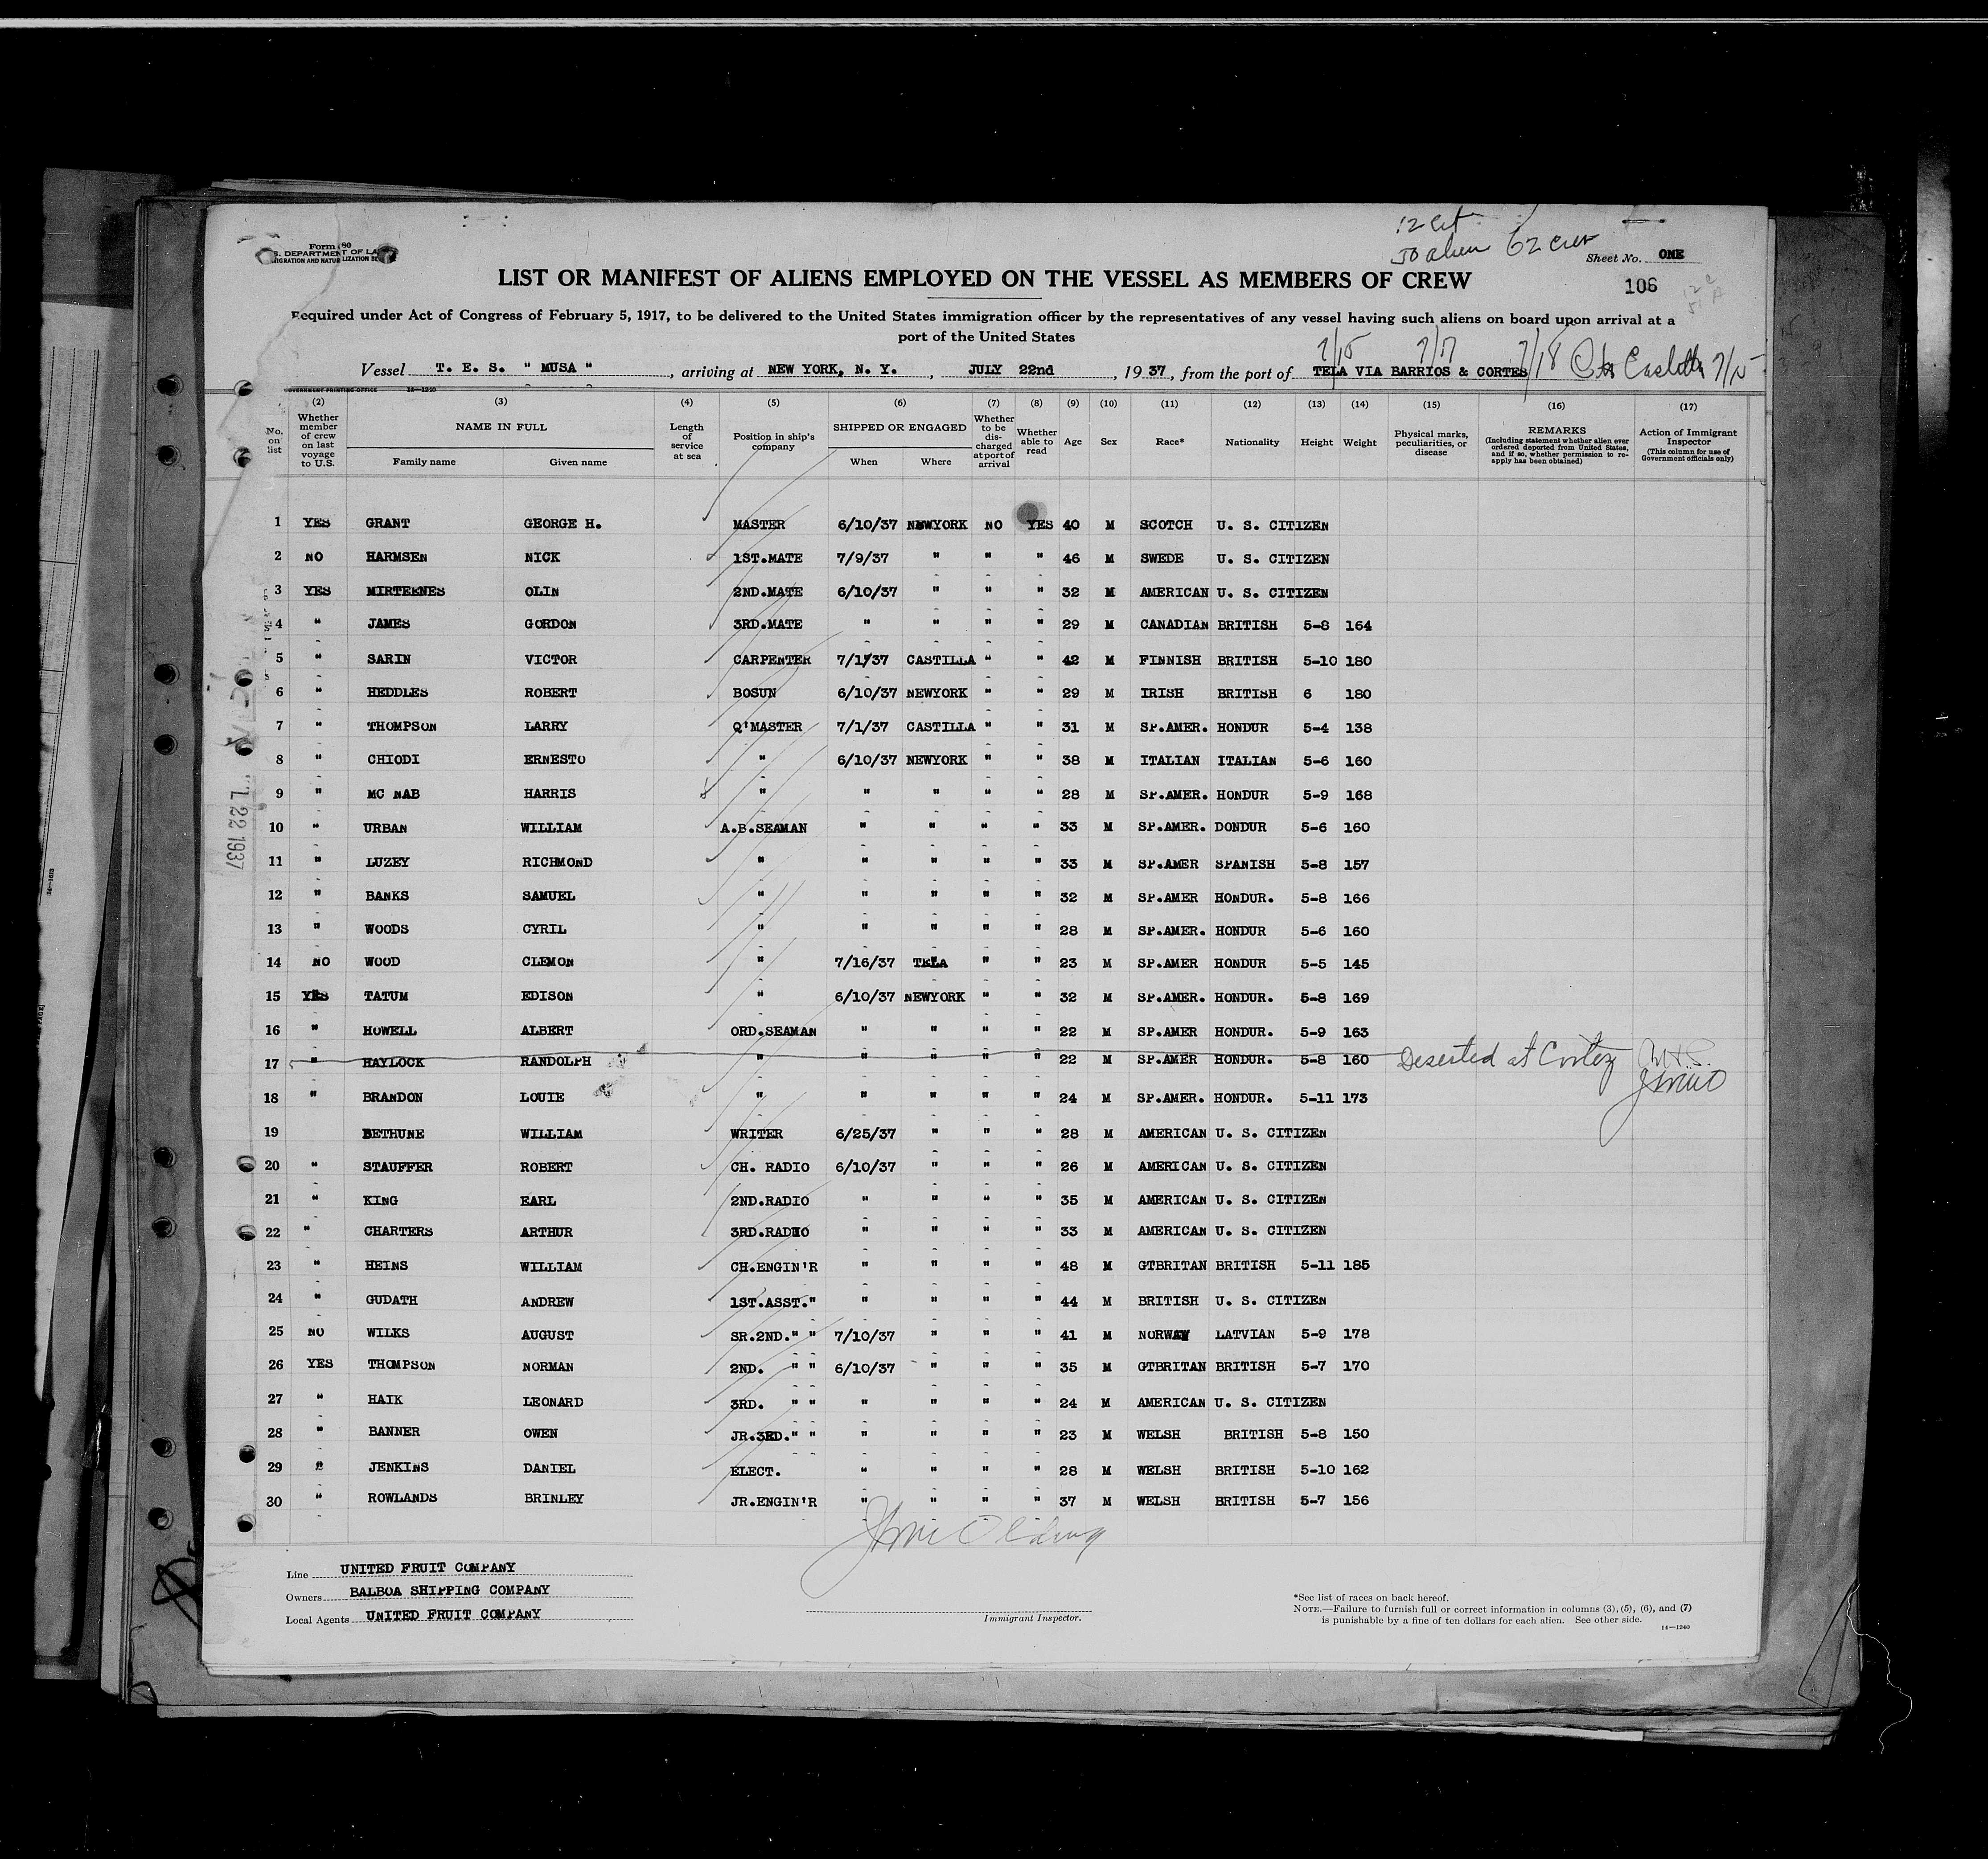 12 Cit
50 alien 62 crew
Form 680
U.S. DEPARTMENT OF LABOR
IMMIGRATION AND NATURALIZATION SERVICE
Sheet No. ONE
LIST OR MANIFEST OF ALIENS EMPLOYED ON THE VESSEL AS MEMBERS OF CREW
106
Required under Act of Congress of February 5, 1917, to be delivered to the United States immigration officer by the representatives of any vessel having such aliens on board upon arrival at a
port of the United States
7/15 7/17 7/18
Vessel T. E. S. " MUSA ", arriving at NEW YORK, N. Y., JULY 22nd, 1937, from the port of TELA VIA BARRIOS & CORTES 7/15
GOVERNMENT PRINTING OFFICE 14—1240
No. on list (2) Whether member of crew on last voyage to U.S. (3) NAME IN FULL Family name Given name (4) Length of service at sea (5) Position in ship's company (6) SHIPPED OR ENGAGED When Where (7) Whether to be discharged at port of arrival (8) Whether able to read (9) Age (10) Sex (11) Race* (12) Nationality (13) Height (14) Weight (15) Physical marks, peculiarities, or disease (16) REMARKS (Including statement whether alien ever ordered deported from United States, and if so, whether permission to reapply has been obtained) (17) Action of Immigrant Inspector (This column for use of Government officials only)
1 YES GRANT GEORGE H. MASTER 6/10/37 NEWYORK NO YES 40 M SCOTCH U. S. CITIZEN
2 NO HARMSEN NICK 1ST.MATE 7/9/37 " " " 46 M SWEDE U. S. CITIZEN
3 YES MIRTEENES OLIN 2ND.MATE 6/10/37 " " " 32 M AMERICAN U. S. CITIZEN
4 " JAMES GORDON 3RD.MATE " " " " 29 M CANADIAN BRITISH 5-8 164
5 " SARIN VICTOR CARPENTER 7/1/37 CASTILLA " " 42 M FINNISH BRITISH 5-10 180
6 " HEDDLES ROBERT BOSUN 6/10/37 NEWYORK " " 29 M IRISH BRITISH 6 180
7 " THOMPSON LARRY Q'MASTER 7/1/37 CASTILLA " " 31 M SP.AMER. HONDUR 5-4 138
8 " CHIODI ERNESTO " 6/10/37 NEWYORK " " 38 M ITALIAN ITALIAN 5-6 160
9 " MC NAB HARRIS " " " " " 28 M SP.AMER. HONDUR 5-9 168
10 " URBAN WILLIAM A.B.SEAMAN " " " " 33 M SP.AMER. DONDUR 5-6 160
11 " LUZEY RICHMOND " " " " " 33 M SP.AMER SPANISH 5-8 157
12 " BANKS SAMUEL " " " " " 32 M SP.AMER HONDUR. 5-8 166
13 " WOODS CYRIL " " " " " 28 M SP.AMER. HONDUR 5-6 160
14 NO WOOD CLEMON " 7/16/37 TELA " " 23 M SP.AMER HONDUR 5-5 145
15 YES TATUM EDISON " 6/10/37 NEWYORK " " 32 M SP.AMER. HONDUR. 5-8 169
16 " HOWELL ALBERT ORD.SEAMAN " " " " 22 M SP.AMER HONDUR. 5-9 163
17 " HAYLOCK RANDOLPH " " " " " 22 M SP.AMER HONDUR. 5-8 160 Deserted at Cortez
18 " BRANDON LOUIE " " " " " 24 M SP.AMER. HONDUR. 5-11 173
19 BETHUNE WILLIAM WRITER 6/25/37 " " " 28 M AMERICAN U. S. CITIZEN
20 " STAUFFER ROBERT CH. RADIO 6/10/37 " " " 26 M AMERICAN U. S. CITIZEN
21 " KING EARL 2ND.RADIO " " " " 35 M AMERICAN U. S. CITIZEN
22 " CHARTERS ARTHUR 3RD.RADIO " " " " 33 M AMERICAN U. S. CITIZEN
23 " HEINS WILLIAM CH.ENGIN'R " " " " 48 M GTBRITAN BRITISH 5-11 185
24 " GUDATH ANDREW 1ST.ASST." " " " " 44 M BRITISH U. S. CITIZEN
25 NO WILKS AUGUST SR.2ND." " 7/10/37 " " " 41 M NORWAY LATVIAN 5-9 178
26 YES THOMPSON NORMAN 2ND. " " 6/10/37 " " " 35 M GTBRITAN BRITISH 5-7 170
27 " HAIK LEONARD 3RD. " " " " " " 24 M AMERICAN U. S. CITIZEN
28 " BANNER OWEN JR.3RD." " " " " " 23 M WELSH BRITISH 5-8 150
29 " JENKINS DANIEL ELECT. " " " " 28 M WELSH BRITISH 5-10 162
30 " ROWLANDS BRINLEY JR.ENGIN'R " " " " 37 M WELSH BRITISH 5-7 156
22 1937
Line UNITED FRUIT COMPANY
Owners BALBOA SHIPPING COMPANY
Local Agents UNITED FRUIT COMPANY
Immigrant Inspector.
*See list of races on back hereof.
NOTE.—Failure to furnish full or correct information in columns (3), (5), (6), and (7)
is punishable by a fine of ten dollars for each alien. See other side.
14—1240